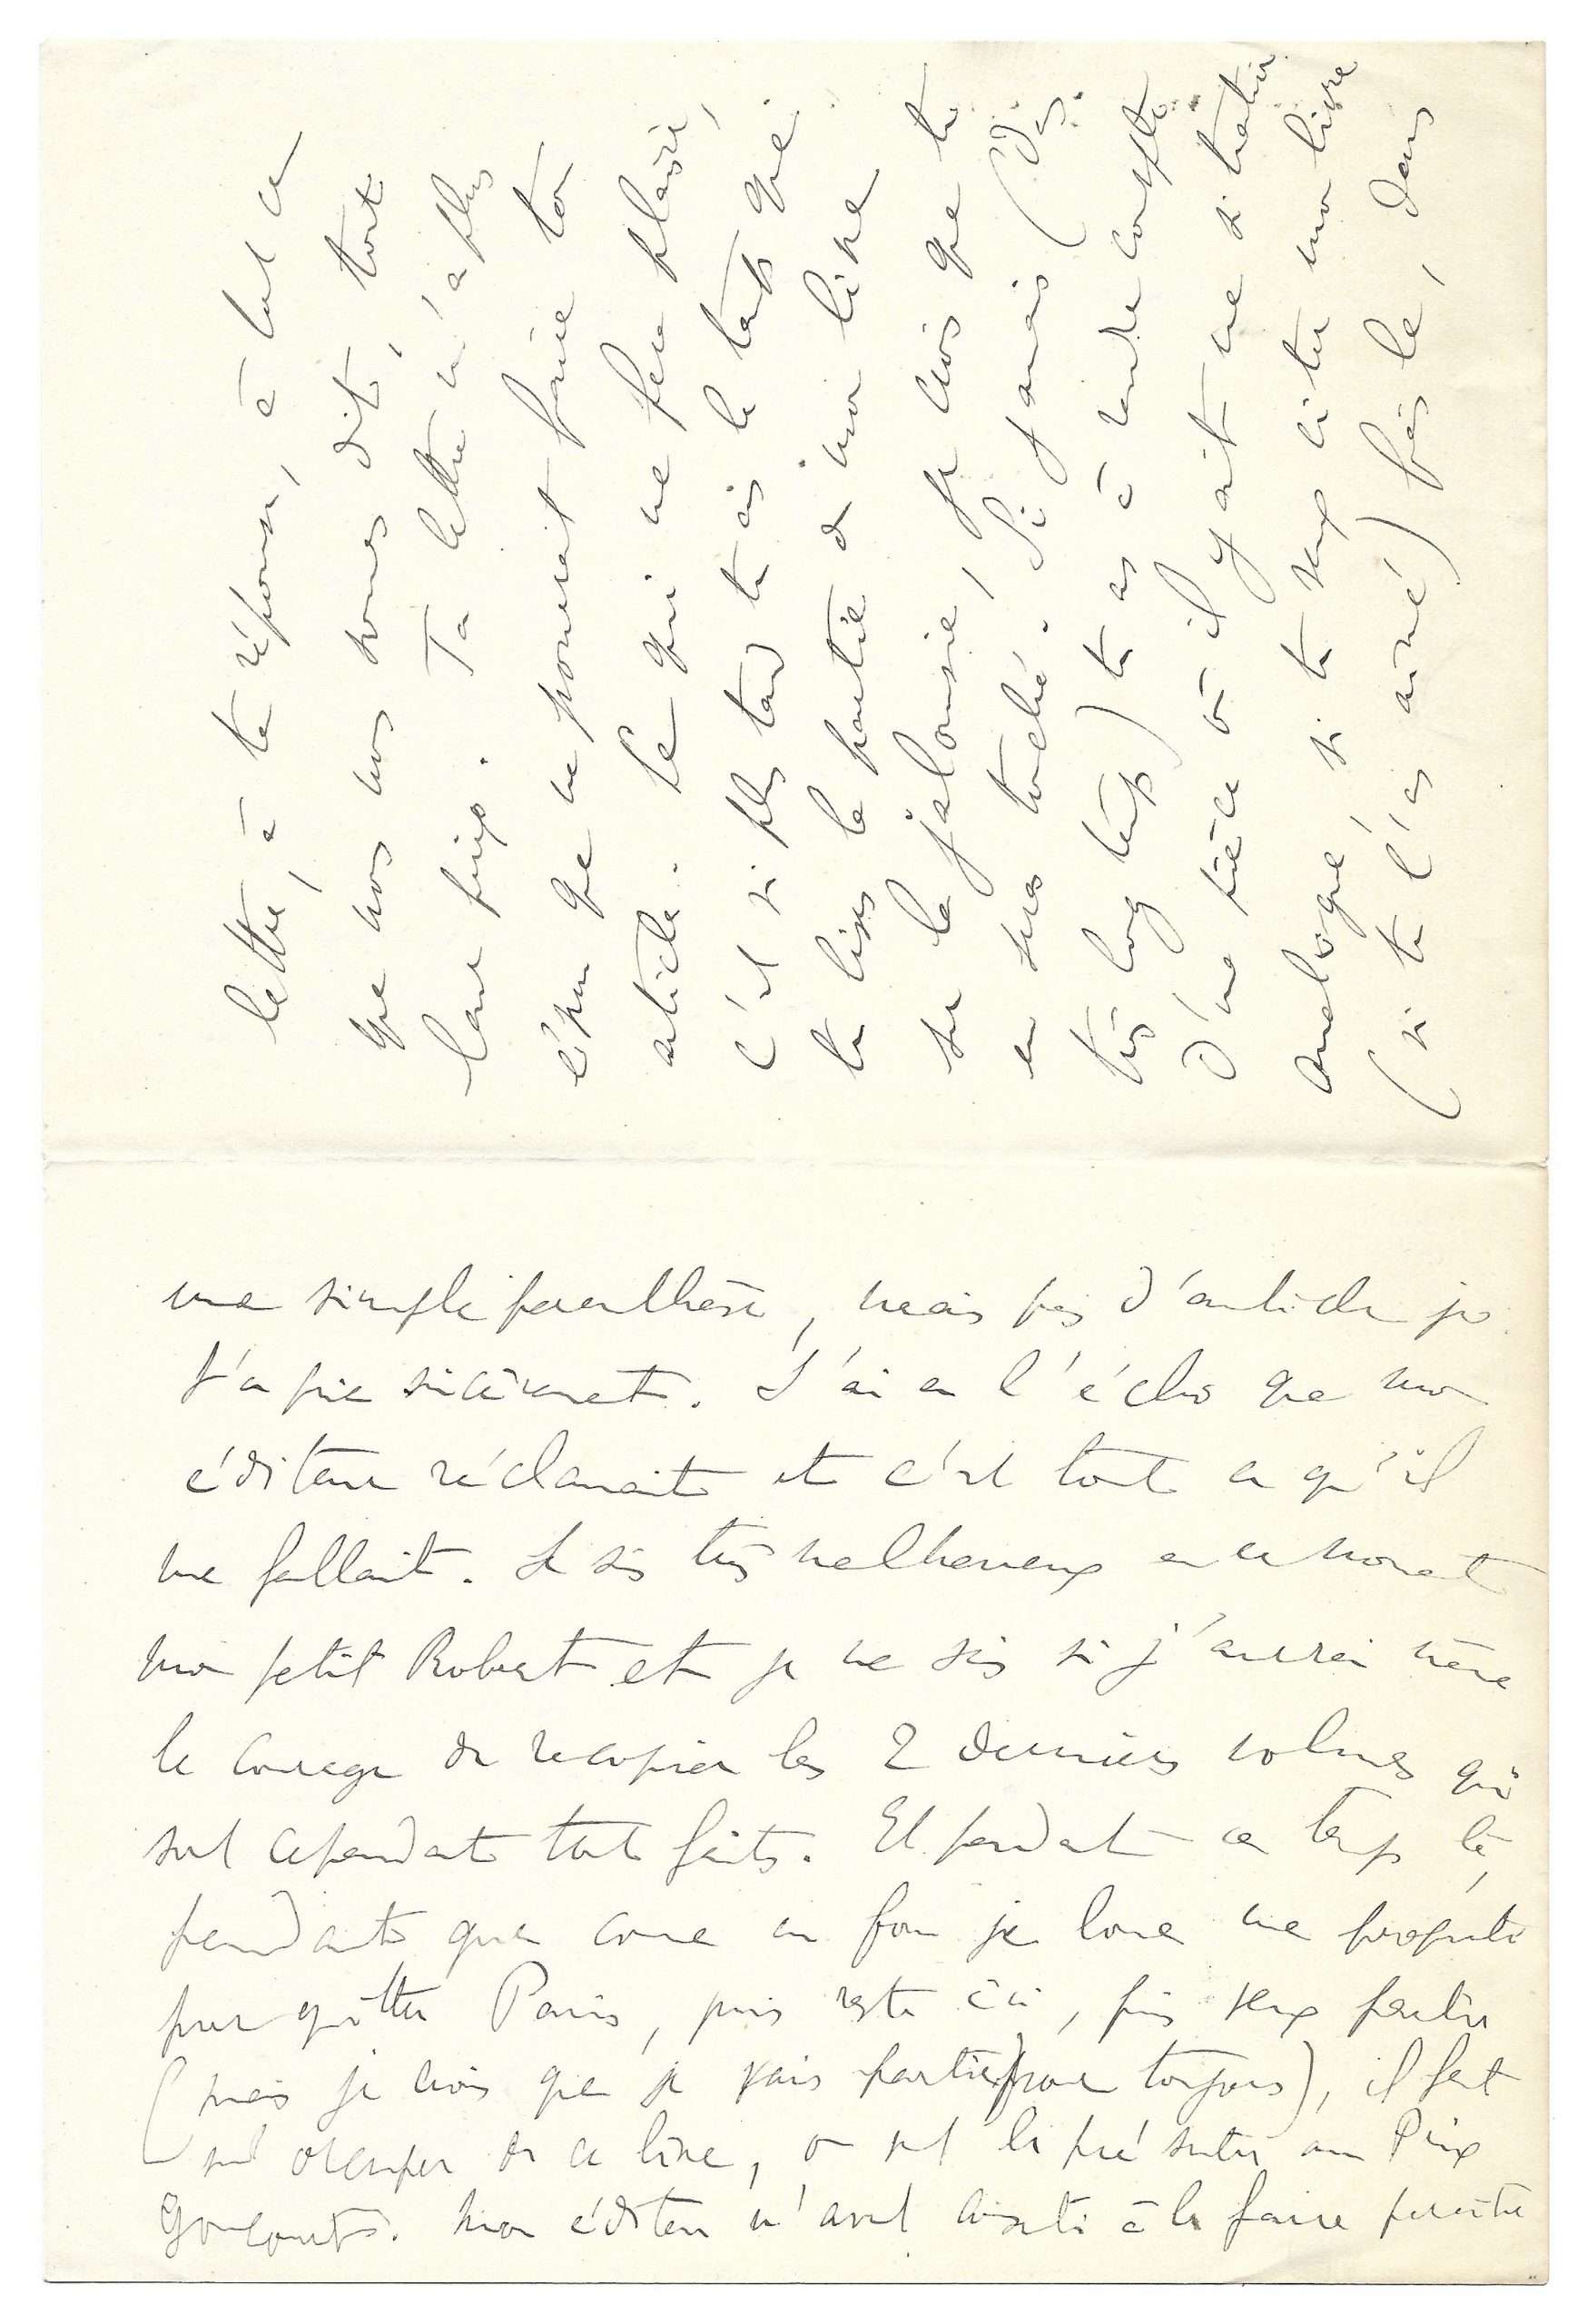 lettre, à ta réponse, à tout ce
que nous nous sommes dit, tout
leur prix. Ta lettre m'a plus
ému que ne pourrait faire ton
article. Ce qui me fera plaisir,
c'est si plus tard tu as le temps que
tu lises la partie de mon livre
sur la jalousie, je crois que tu
en seras touché. Si jamais (d'ici
très longtemps) tu as à rendre compte
d'une pièce où il y ait une situation
analogue, si tu veux citer mon livre
(si tu l'as aimé) fais le, dans
une simple parenthèse, mais pas d'article je
t'en prie sincèrement. J'ai eu l'écho que mon
éditeur réclamait et c'est tout ce qu'il
me fallait. Je suis très malheureux en ce moment
mon petit Robert et je ne sais si j'aurai même
le courage de recopier les 2 derniers volumes qui
sont cependant tout faits. Et pendant ce temps là,
pendant que comme un fou je loue une propriété
pour quitter Paris, puis reste ici, puis veux partir
(mais je crois que je vais partir pour toujours), il faut
m'occuper de ce livre, on veut le présenter au Prix
Goncourt. Mon éditeur m'avait consenti à le faire paraître